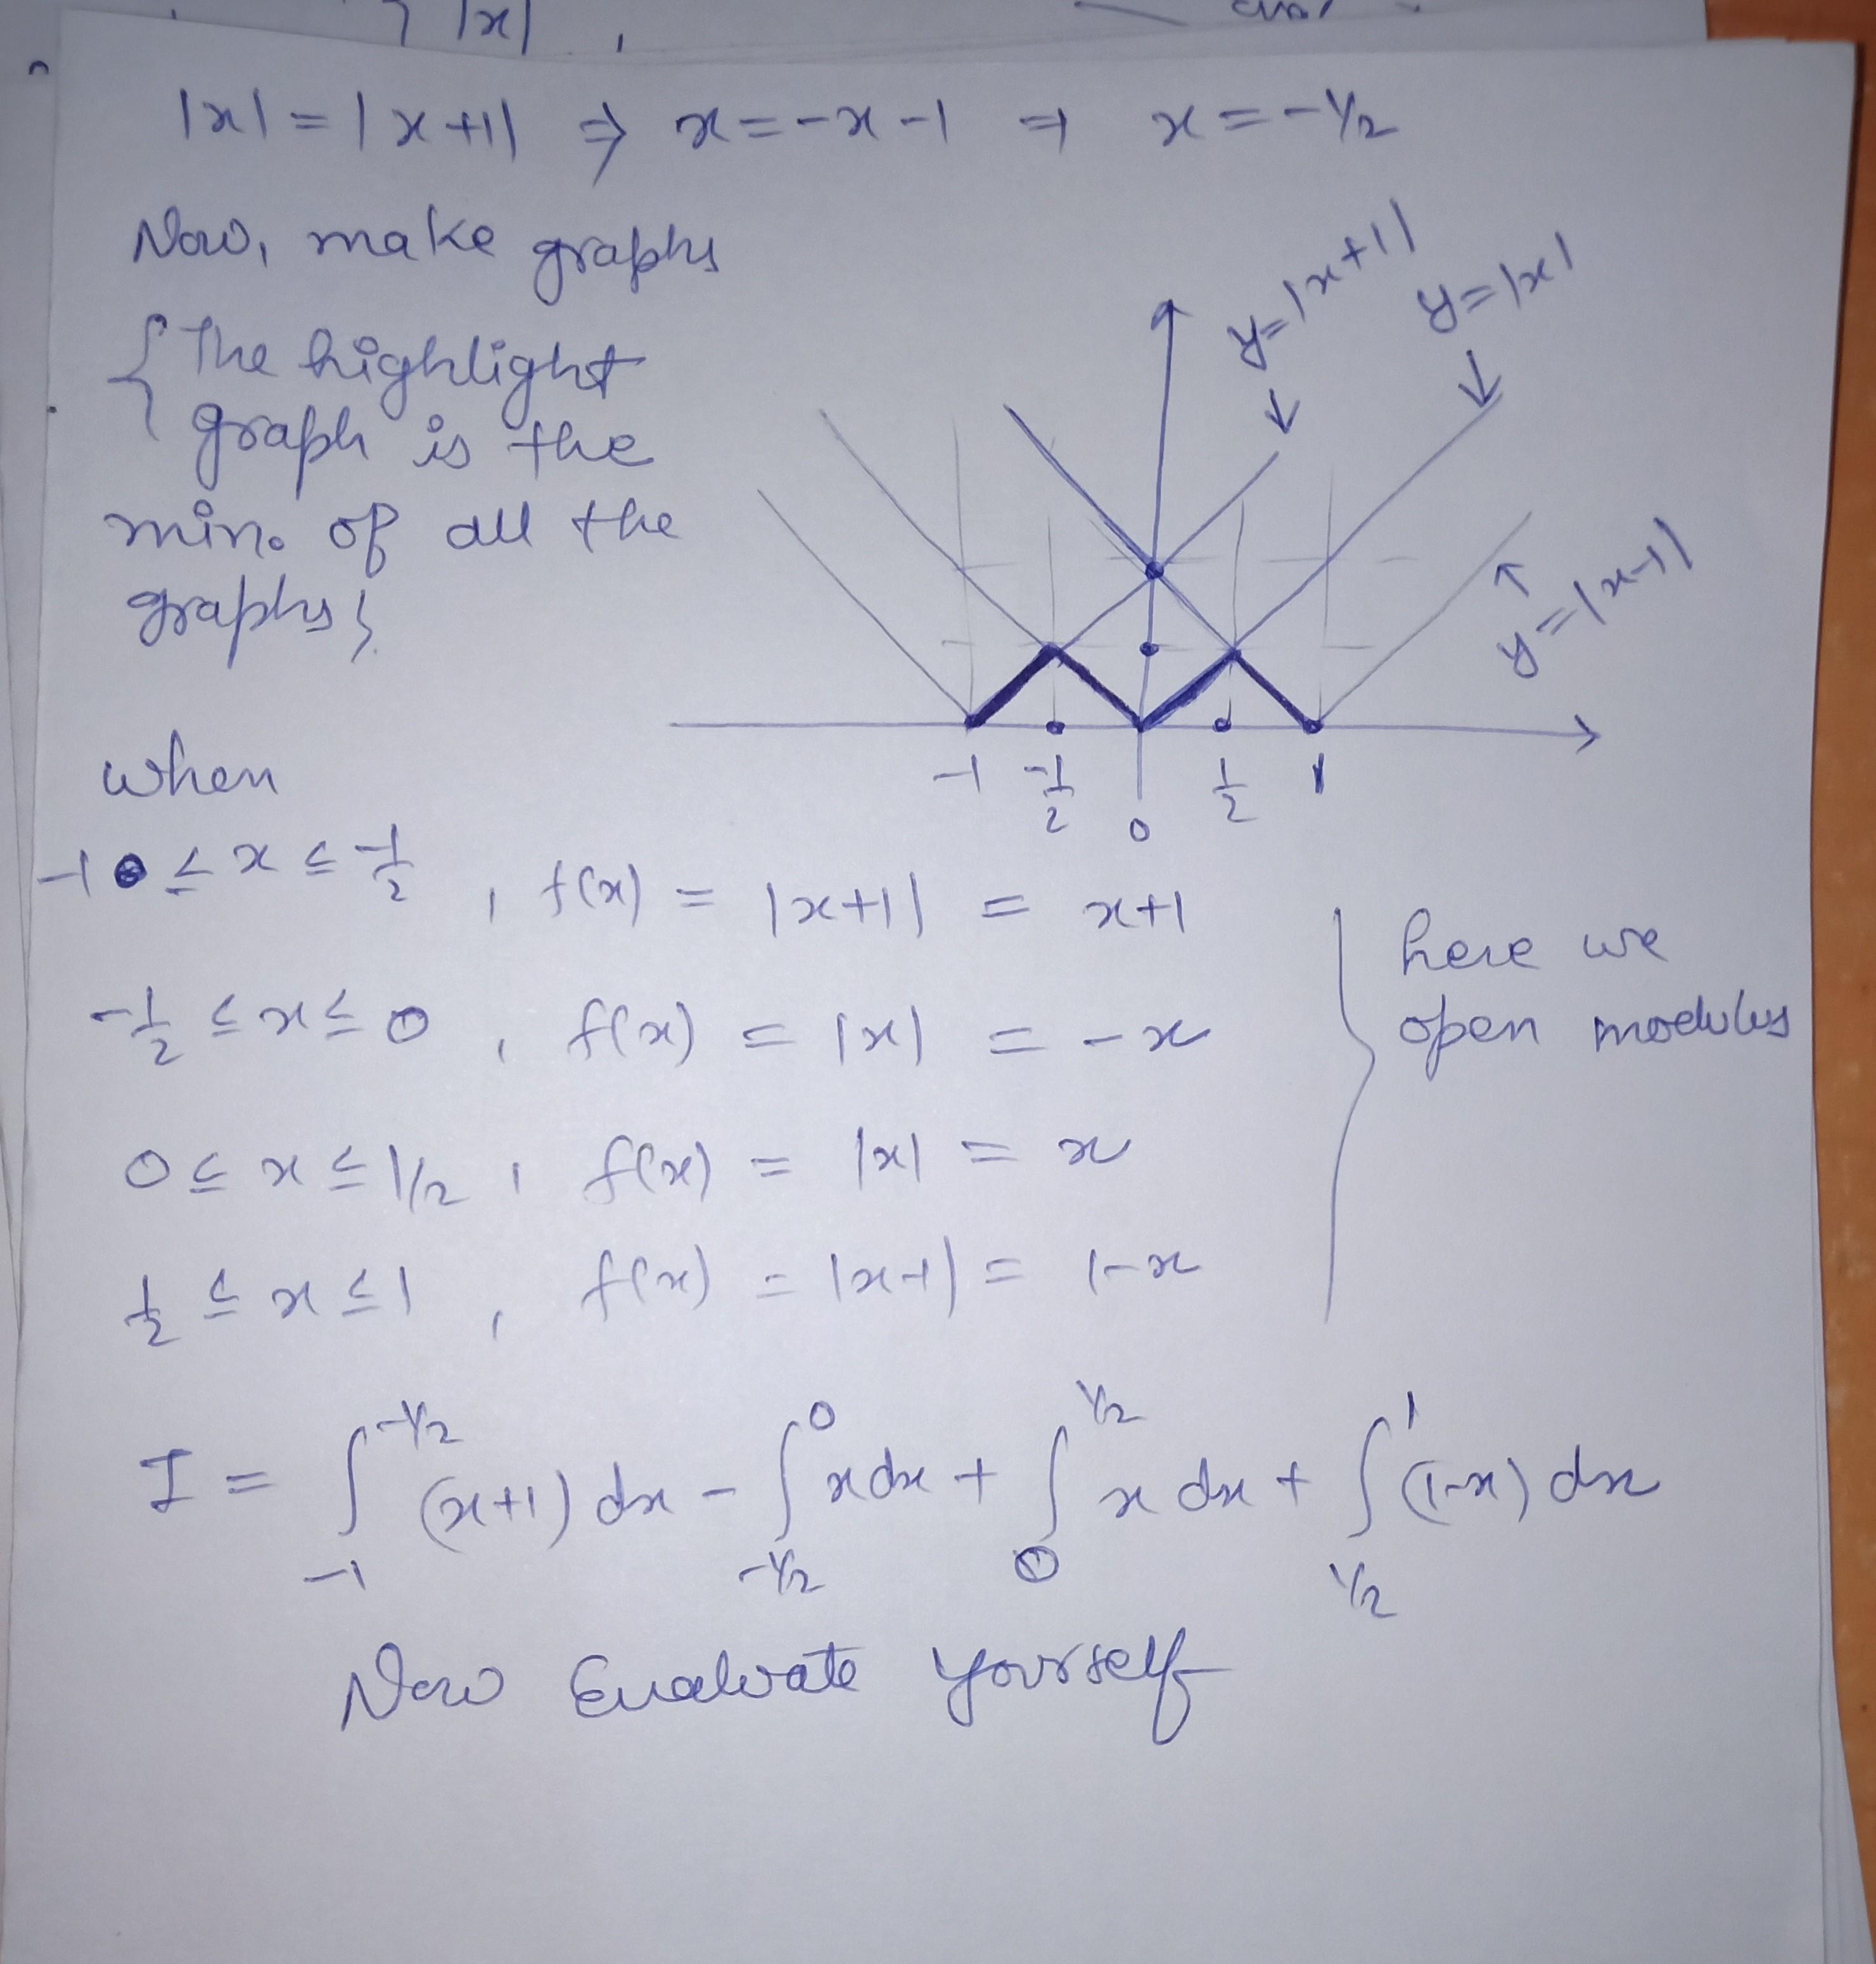 |x|,
|x| = |x+1| ⇒ x = -x-1 ⇒ x = -1/2
Now, make graphs
{The highlight
graph is the
min. of all the
graphs}
y=|x+1|
y=|x|
y=|x-1|
-1 -1/2 0 1/2 1
when
-1 ≤ x ≤ -1/2, f(x) = |x+1| = x+1
-1/2 ≤ x ≤ 0, f(x) = |x| = -x
0 ≤ x ≤ 1/2, f(x) = |x| = x
1/2 ≤ x ≤ 1, f(x) = |x-1| = 1-x
here we
open modulus
I = ∫_{-1}^{-1/2} (x+1) dx - ∫_{-1/2}^{0} x dx + ∫_{0}^{1/2} x dx + ∫_{1/2}^{1} (1-x) dx
Now Evaluate yourself